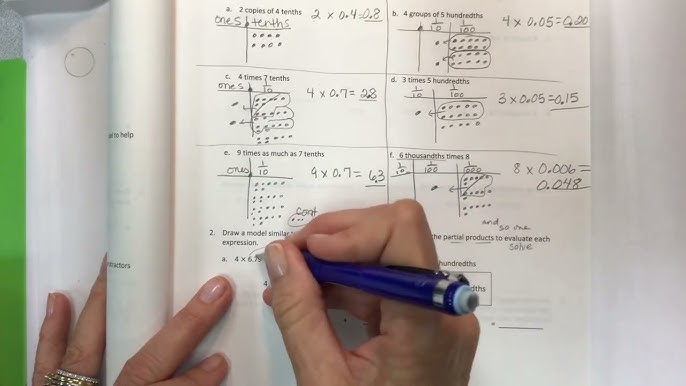 a. 2 copies of 4 tenths
2 x 0.4=0.8
ones tenths
b. 4 groups of 5 hundredths
4 x 0.05=0.20
1/10 1/100
c. 4 times 7 tenths
ones 1/10
4 x 0.7= 2.8
d. 3 times 5 hundredths
1/10 1/100
3 x 0.05=0.15
e. 9 times as much as 7 tenths
ones 1/10
9 x 0.7= 6.3
cont
f. 6 thousandths times 8
1/10 1/100 1/1000
8 x 0.006=
0.048
and
so one
2. Draw a model similar
the partial products to evaluate each
expression.
solve
a. 4 × 6.79
hundredths
4
dths
=
el to help
ntractors